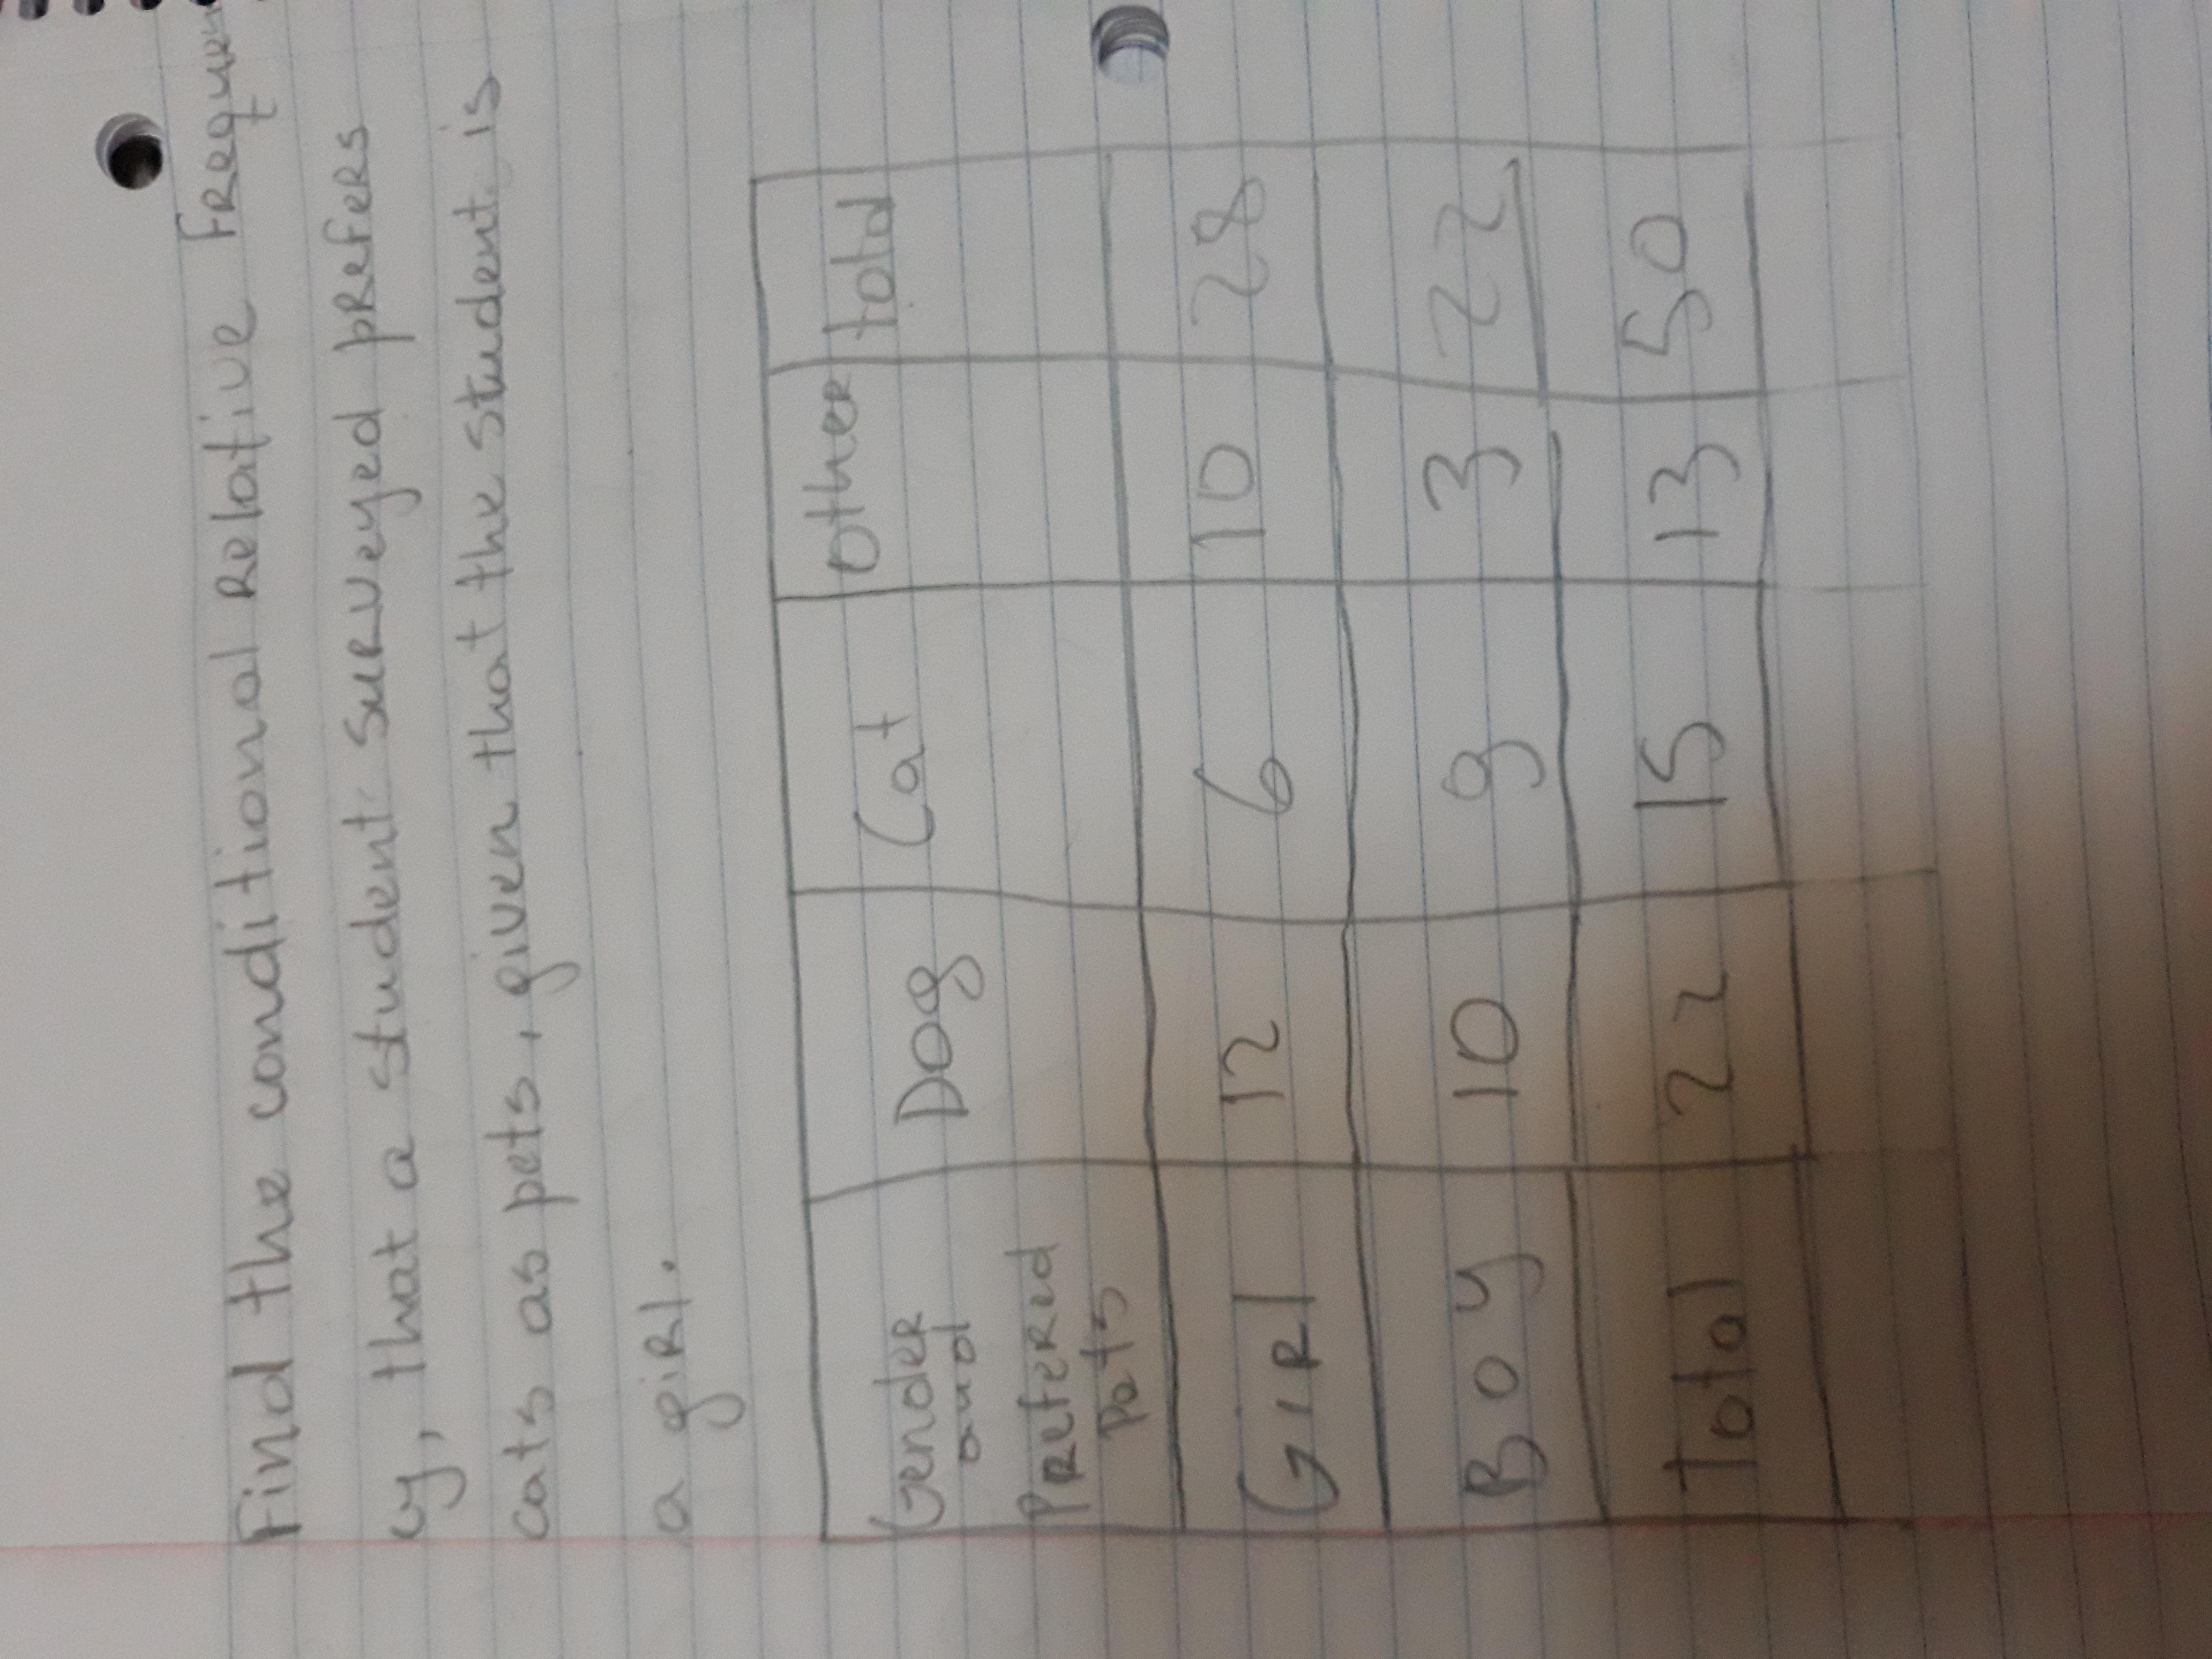 Find the conditional relative Frequen
cy, that a student surveyed prefers
cats as pets, given that the student is
a girl.
Gender and Prefered Pats Dog Cat Other total
Girl 12 6 10 28
Boy 10 9 3 22
Total 22 15 13 50